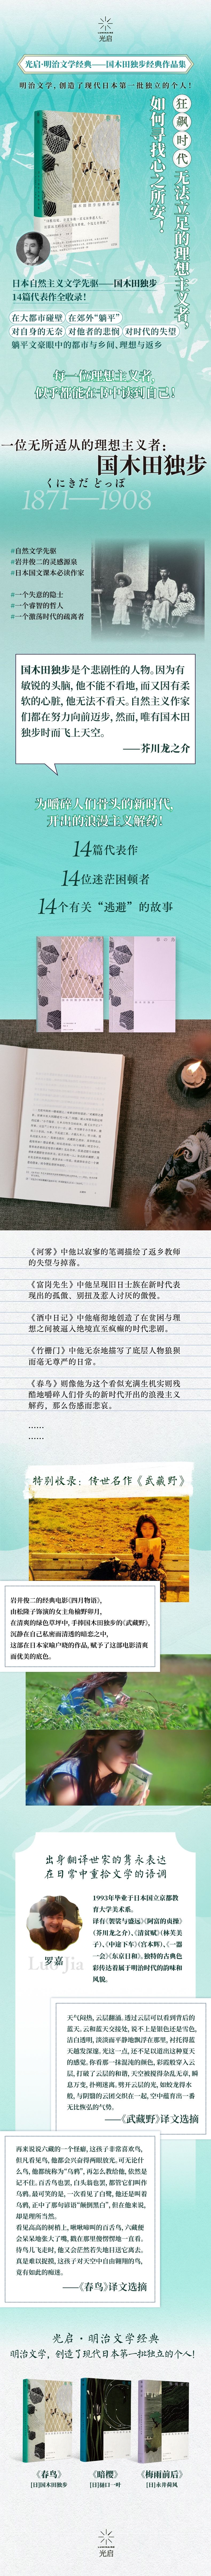 光启
光启·明治文学经典——国木田独步经典作品集
明治文学,创造了现代日本第一批独立的个人!
狂飙时代
无法立足的理想主义者,
如何寻找心之所安!
日本自然主义文学先驱——国木田独步
14篇代表作全收录!
在大都市碰壁 在郊外“躺平”
对自身的无奈 对他者的悲悯 对时代的失望
躺平文豪眼中的都市与乡间、理想与返乡
每一位理想主义者,
似乎都能在书中读到自己!
一位无所适从的理想主义者:
国木田独步
くにきだ どっぽ
1871—1908
#自然文学先驱
#岩井俊二的灵感源泉
#日本国文课本必读作家
#一个失意的隐士
#一个睿智的哲人
#一个激荡时代的疏离者
国木田独步是个悲剧性的人物。因为有
敏锐的头脑,他不能不看地,而又因有柔
软的心脏,他无法不看天。自然主义作家
们都在努力向前迈步,然而,唯有国木田
独步时而飞上天空。
——芥川龙之介
为嘬碎人们骨头的新时代,
开出的浪漫主义解药!
14篇代表作
14位迷茫困顿者
14个有关“逃避”的故事
《河雾》中他以寂寥的笔调描绘了返乡教师
的失望与掉落。
《富岗先生》中他呈现旧日士族在新时代表
现出的孤傲、别扭及惹人讨厌的傲慢。
《酒中日记》中他痛彻地创造了在贫困与理
想之间被逼入绝境直至疯癫的时代悲剧。
《竹栅门》中他无奈地描写了底层人物狼狈
而毫无尊严的日常。
《春鸟》则像他为这个看似充满生机实则残
酷地嘬碎人们骨头的新时代开出的浪漫主义
解药。那么伤感而悲哀。
……
……
特别收录:传世名作《武藏野》
岩井俊二的经典电影《四月物语》,
由松隆子饰演的女主角榆野卯月,
在清爽的绿色草坪中,手捧国木田独步的《武藏野》,
沉静在自己私密而清透的暗恋之中,
这部在日本家喻户晓的作品,赋予了这部电影清爽
而优美的底色。
出身翻译世家的隽永表达
在日常中重拾文学的语调
Luo Jia
罗嘉
1993年毕业于日本国立京都教
育大学美术系。
译有《袈裟与盛远》《阿富的贞操》
(芥川龙之介)、《清贫赋》(林芙美
子)、《中途下车》(宫本辉)、《一器
一会》《东京日和》。独特的古典色
彩传达着属于明治时代的韵味和
风貌。
天气闷热,云层翻涌,透过云层可以看到背后的
蓝天。云和蓝天交接处,说不上是银色还是雪色,
洁白透明,淡淡而平静地飘浮在那里,衬托得蓝
天越发深邃。光这一点,还不足以道出这种夏天
的感觉。你看那一抹混沌的颜色,彩霞般穿入云
层,打破了云层的和谐,天空被搅得杂乱无章,瞬
息万变,扑朔迷离。劈开云层的光,如蛟龙得水
般,与阴翳的云团交织在一起,空中蕴育出一番
无比恢弘的气势。
——《武藏野》译文选摘
再来说说六藏的一个怪癖,这孩子非常喜欢鸟,
但凡看见鸟,他都会兴奋得两眼放光。可无论什
么鸟,他都统称为“乌鸦”,再怎么教给他,依然是
记不住。百舌鸟也罢,白头翁也罢,都管它们叫作
乌鸦。最可笑的是,一次看见了白鹭,他还是叫着
乌鸦。正中了那句谚语“颠倒黑白”,但在他来说,
却是理所当然。
看见高高的树梢上,啾啾啼叫的百舌鸟,六藏便
会呆呆地张大了嘴,戳在那里傻愣愣地一直看。
待鸟儿飞走时,他又会茫然若失地目送它离去。
真是难以捉摸,这孩子对天空中自由翱翔的鸟,
竟有如此的痴迷。
——《春鸟》译文选摘
光启·明治文学经典
明治文学,创造了现代日本第一批独立的个人!
《春鸟》 《暗樱》 《梅雨前后》
[日]国木田独步 [日]樋口一叶 [日]永井荷风
光启